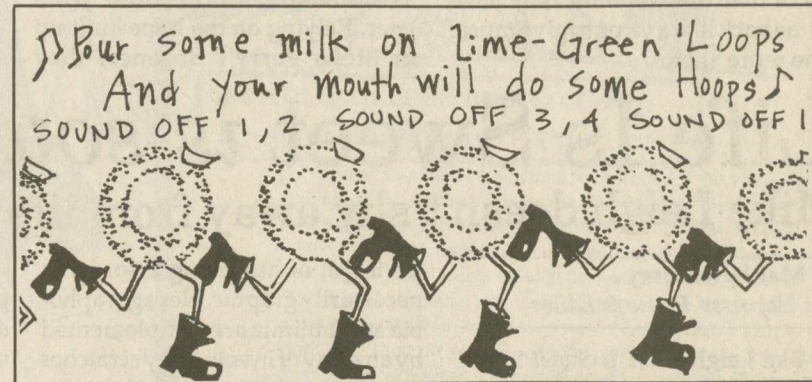 ♫ Pour some milk on Lime-Green Loops
And your mouth will do some Hoops ♪
SOUND OFF 1, 2 SOUND OFF 3, 4 SOUND OFF 1